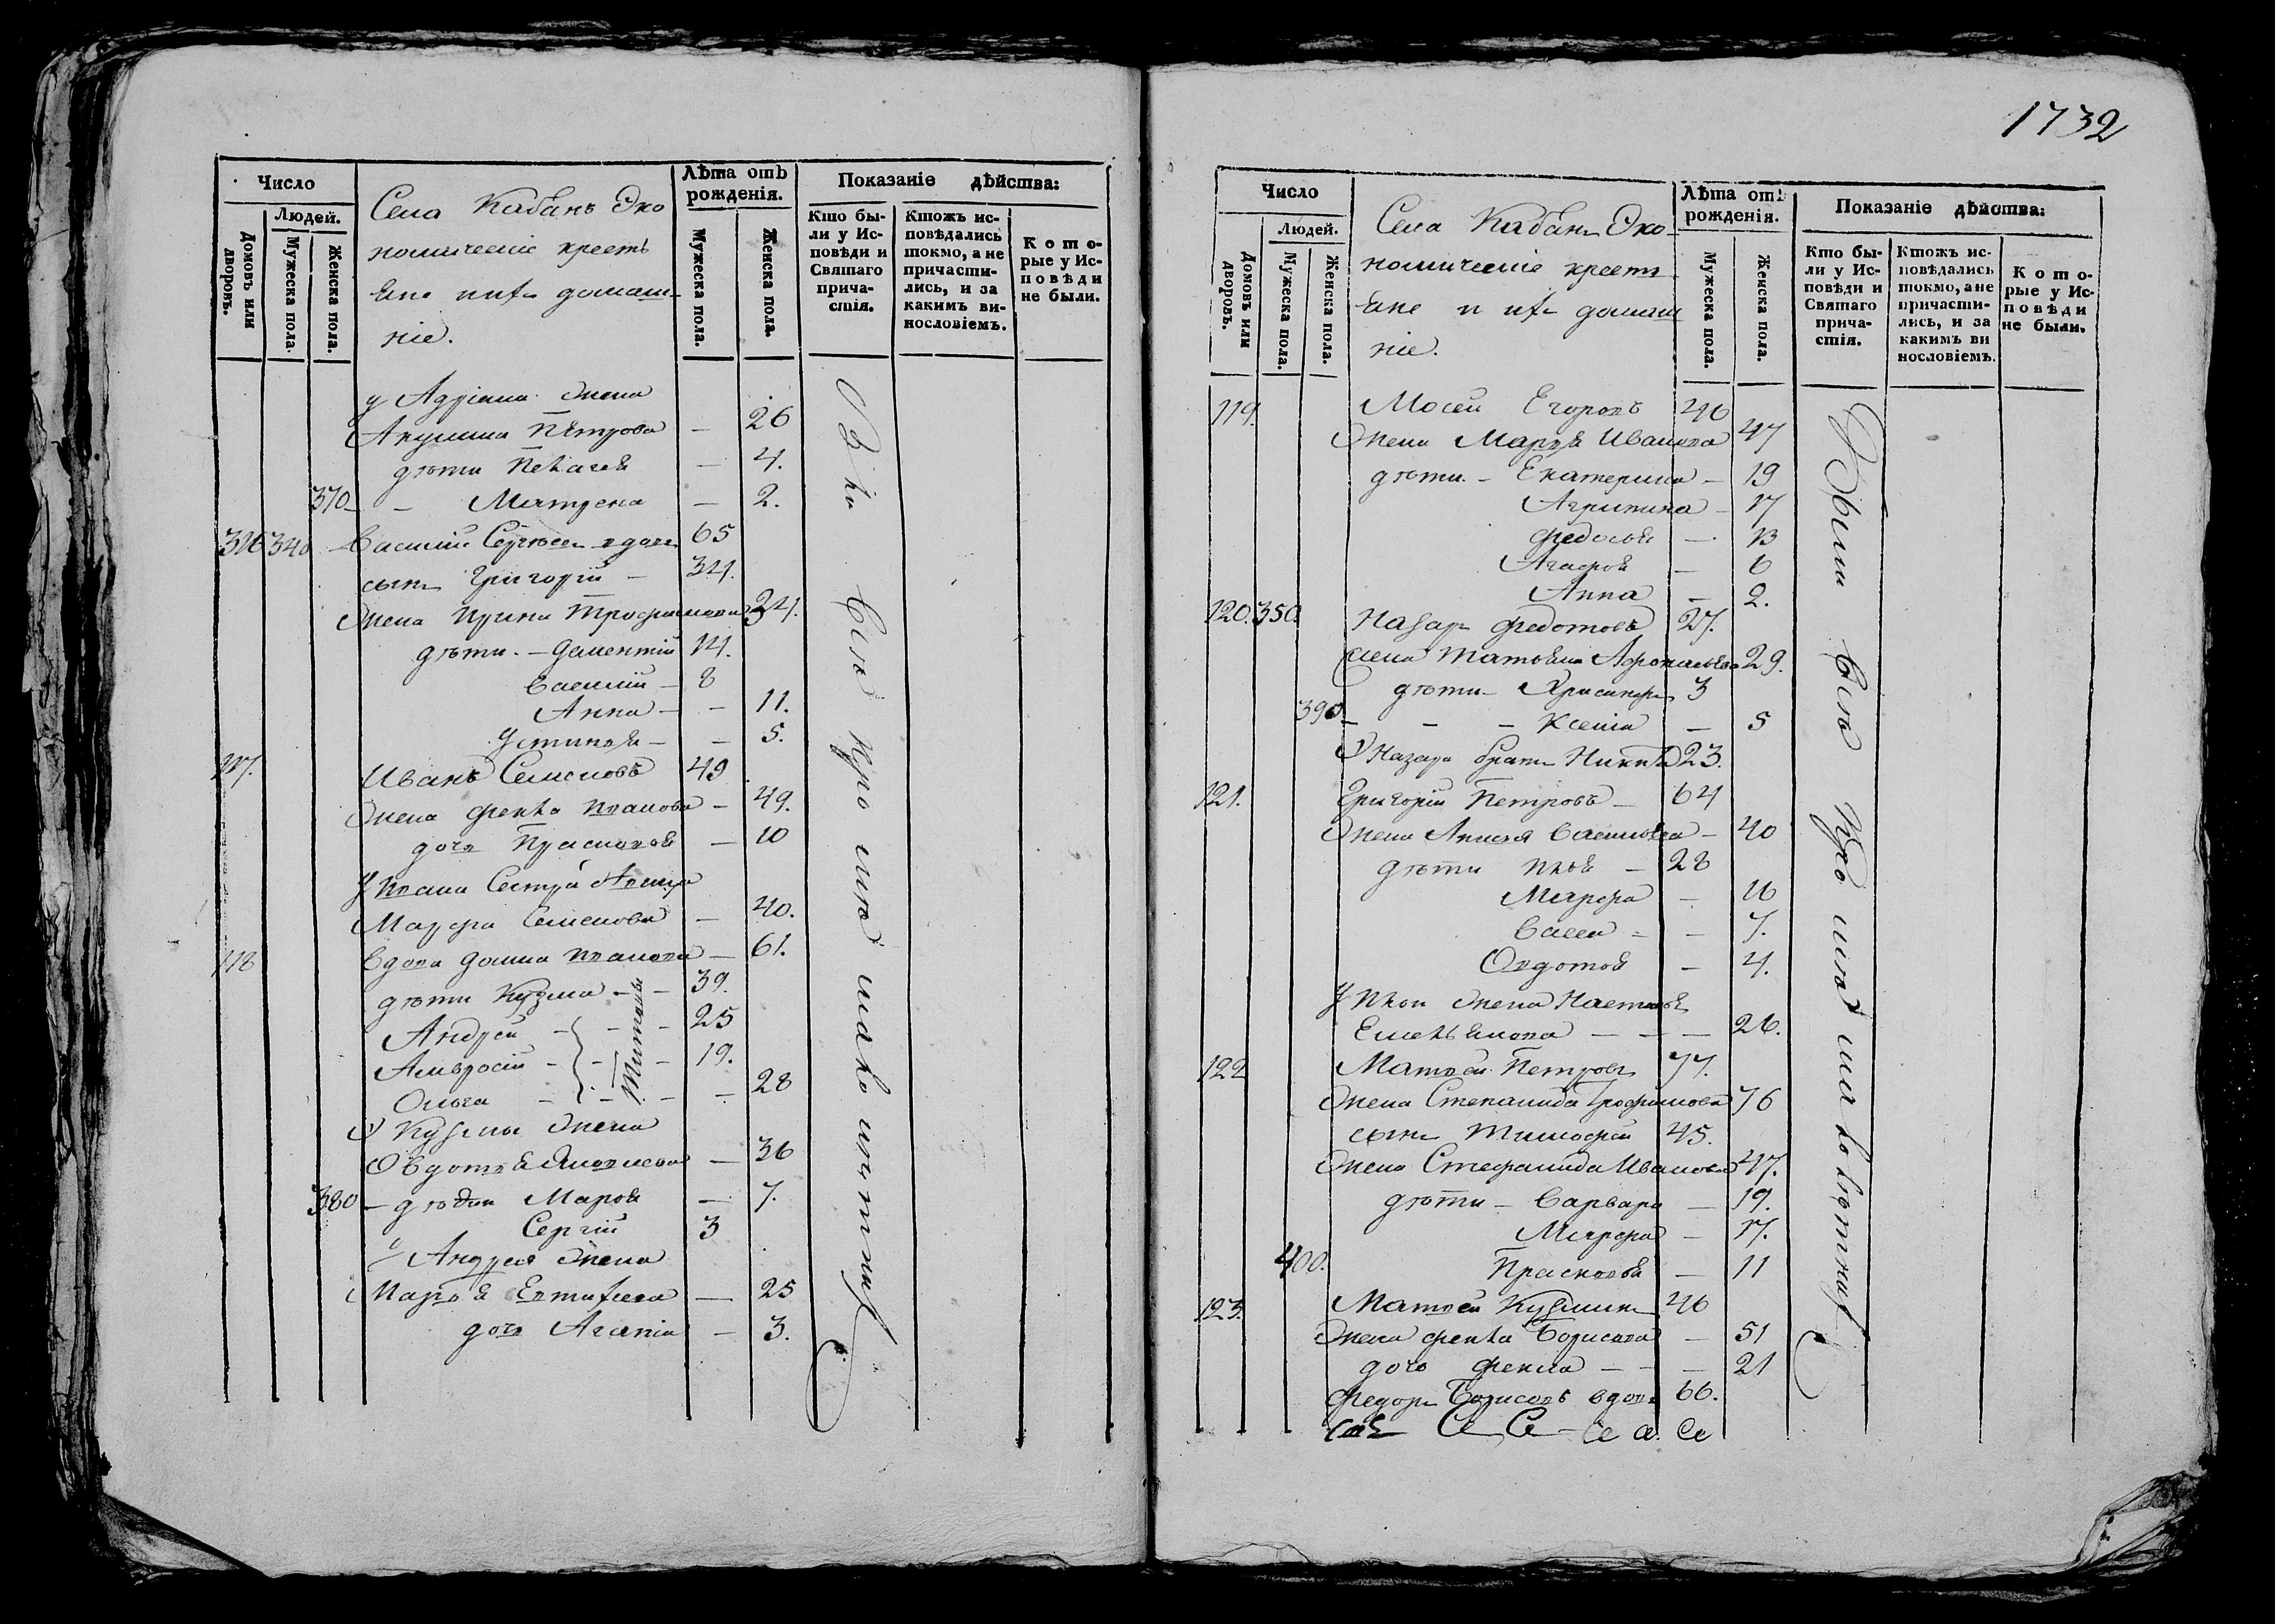 Число
Людей.
Домовъ или дворовъ.
Мужеска пола.
Женска пола.
Села Кабанъ Эко
номическiе крестъ
яне и ихъ домаш-
нiе.
Лѣта отъ рожденiя.
Мужеска пола.
Женска пола.
Показанiе дѣйства:
Кто бы-
ли у Ис-
повѣди и
Святаго
прича-
стiя.
Ктожъ ис-
повѣдались
токмо, а не
причасти-
лись, и за
какимъ ви-
нословiемъ.
Кото-
рые у Ис-
повѣди
не были.
у Адрiана жена
Акулина Петрова — 26
дѣти Пелагея — 4.
370 — Матрена — 2.
340 Василiй Сергѣевъ вдовъ 65
сынъ Григорiй — 34.
жена Ирина Трофимова 34.
дѣти — Дементiй 14.
Василiй — 8
Анна — 11.
Устинья — 5.
117. Иванъ Семеновъ 49
жена Фекла Иванова — 49.
дочь Прасковья — 10
у Ивана сестра
Марфа Семенова — 40.
118 вдова Домна Иванова — 61.
дѣти Кузма — 39.
Андрей — 25
Амвросiй — 19.
Ольга — 28
Титовы
у Кузмы жена
Овдотья Яковлева — 36
380 — дѣти Марья — 7.
Сергiй 3
у Андрея жена
Марья Евтифеева — 25
дочь Агапiя — 3.
Всѣ кромѣ малолѣтнихъ
1732
Число
Людей.
Домовъ или дворовъ.
Мужеска пола.
Женска пола.
Села Кабанъ Эко-
номическiе крестъ
яне и ихъ домаш
нiе.
Лѣта отъ рожденiя.
Мужеска пола.
Женска пола.
Показанiе дѣйства:
Кто бы-
ли у Ис-
повѣди и
Святаго
прича-
стiя.
Ктожъ ис-
повѣдались
токмо, а не
причасти-
лись, и за
какимъ ви
нословiемъ.
Кото-
рые у Ис-
повѣди
не были.
119. Мосей Егоровъ 46
жена Марья Иванова 47
дѣти — Екатерина — 19
Агрипина — 17
Федосья — 13
Агафья — 6
Анна — 2.
120. 350. Назаръ Федотовъ 27.
жена Татьяна Афонасьева 29.
дѣти — Хрисанфъ 3
390 — Ксенiя — 5
у Назара братъ Никита 23.
121. Григорiй Петровъ — 64
жена Анисья Васильева — 40
дѣти Яковъ — 28
Марфа — 10
Васса — 7.
Овдотья — 4.
у Якова жена Настасья
Емельянова — 26.
122 Матвей Петровъ 77.
жена Степанида Трофимова 76
сынъ Тимофей 45.
жена Стефанида Иванова 47.
дѣти — Варвара — 19.
Марфа — 17.
400. Прасковья — 11
123. Матвей Кузминъ 46
жена Фекла Борисова — 51
дочь Фекла — 21
Федоръ Борисовъ вдовъ 66.
Были всѣ кромѣ малолѣтнихъ